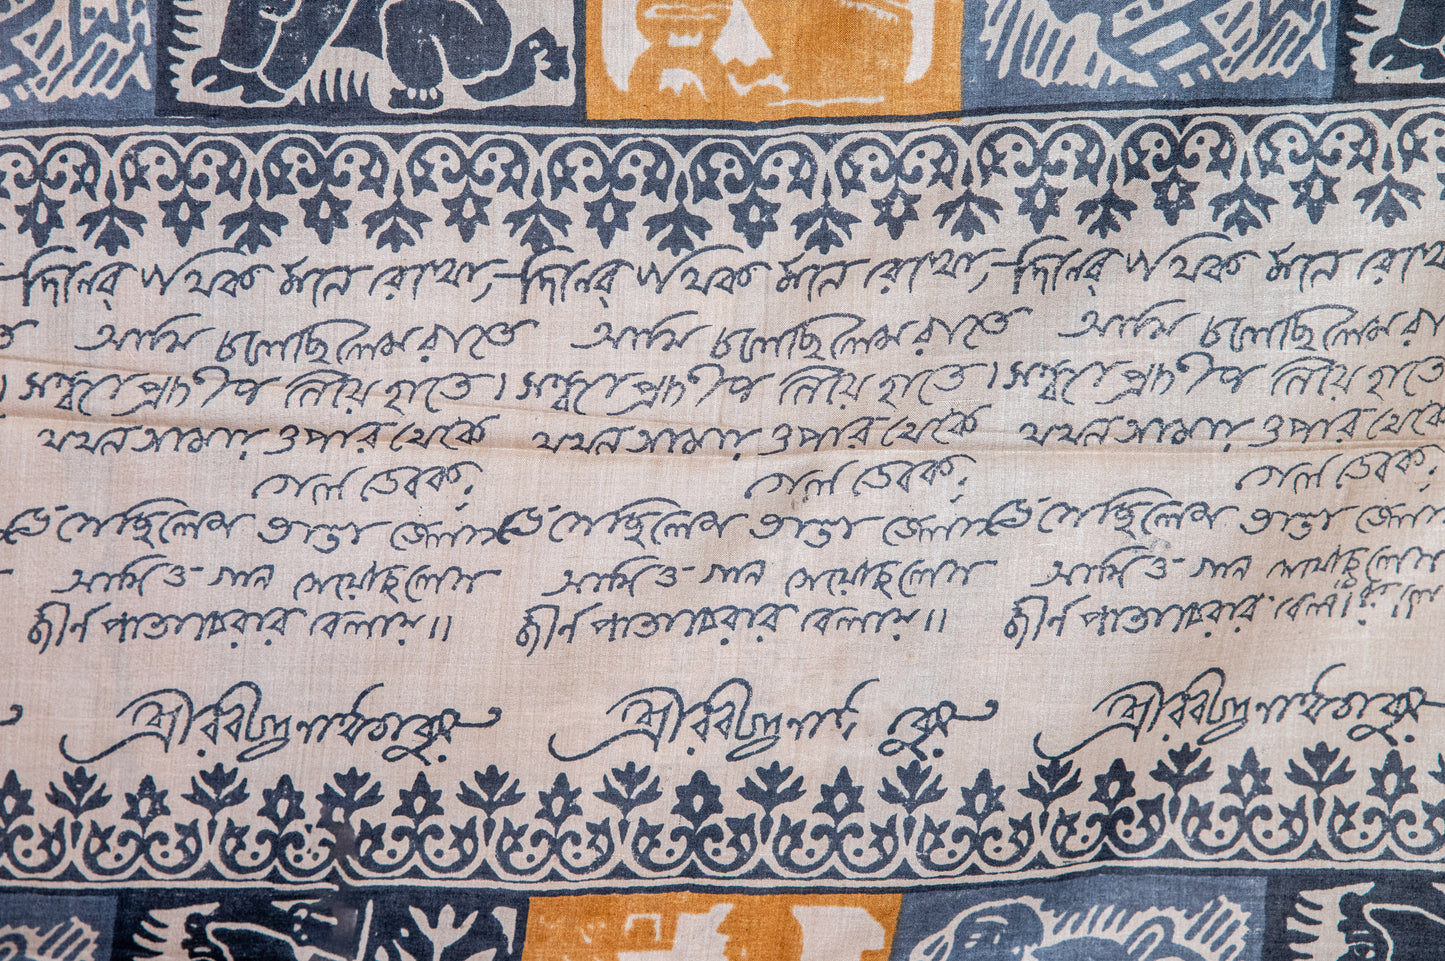 দিনের পথিক মনে রেখো,— দিনের পথিক মনে রেখো,— দিনের পথিক মনে রেখো
আমি চলেছিলেম রাতে আমি চলেছিলেম রাতে আমি চলেছিলেম রা
সন্ধ্যাপ্রদীপ নিয়ে হাতে। সন্ধ্যাপ্রদীপ নিয়ে হাতে। সন্ধ্যাপ্রদীপ নিয়ে হাতে
যখন আমায় ওপার থেকে যখন আমায় ওপার থেকে যখন আমায় ওপার থেকে
গেল ডেকে গেল ডেকে গেল ডেকে
ভেসেছিলেম ভাঙা ভেলায় ভেসেছিলেম ভাঙা ভেলায় ভেসেছিলেম ভাঙা ভেলায়
আমিও গান গেয়েছিলেম আমিও গান গেয়েছিলেম আমিও গান গেয়েছিলেম
জীর্ণ পাতা ঝরার বেলায়॥ জীর্ণ পাতা ঝরার বেলায়॥ জীর্ণ পাতা ঝরার
শ্রীরবীন্দ্রনাথ ঠাকুর শ্রীরবীন্দ্রনাথ ঠাকুর শ্রীরবীন্দ্রনাথ ঠাকুর